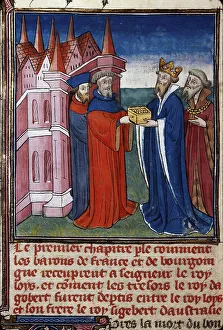 Le premier chapitre ple comment
les barons de france et de bourgoin
gne recuprent a seigneur le roy
loys, et coment les tresors le roy da
gobert furent deptis entre le roy loys
et son frere le roy sigebert daustrasie
pres la mort du